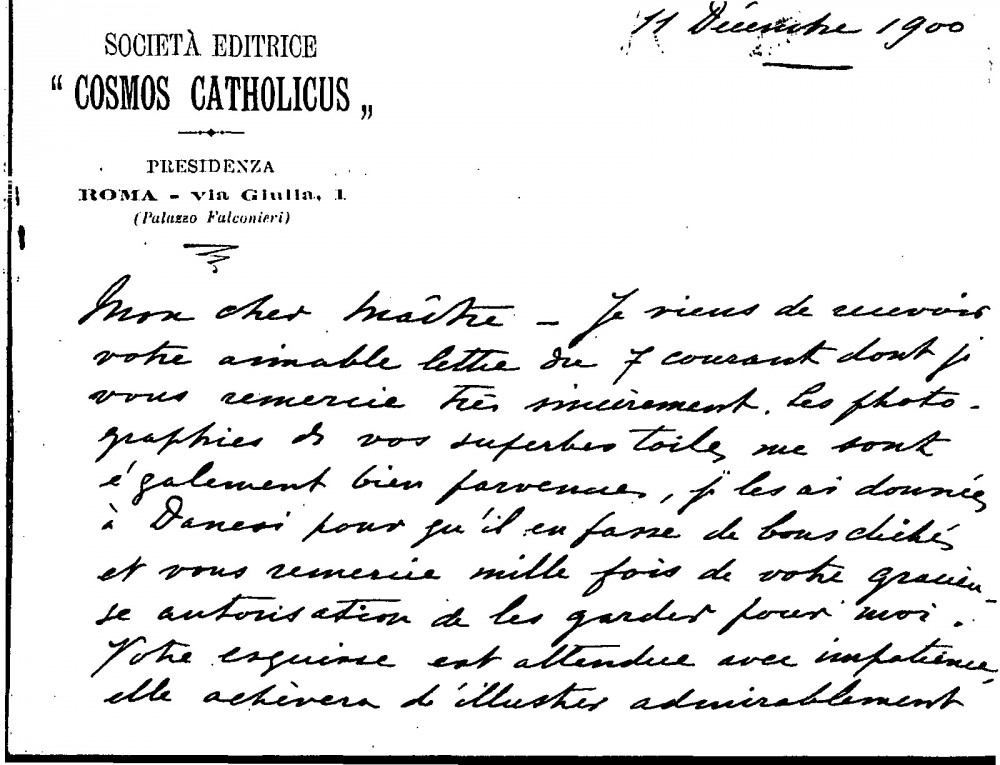 11 Décembre 1900
SOCIETÀ EDITRICE
“ COSMOS CATHOLICUS „
PRESIDENZA
ROMA - via Giulia, 1
(Palazzo Falconieri)
Mon cher Maître – Je viens de recevoir
votre aimable lettre du 7 courant dont je
vous remercie très sincèrement. Les photo-
graphies de vos superbes toiles me sont
également bien parvenues, je les ai données
à Danesi pour qu'il en fasse de bons clichés
et vous remercie mille fois de votre gracieu-
se autorisation de les garder pour moi.
Votre esquisse est attendue avec impatience,
elle achèvera d'illustrer admirablement